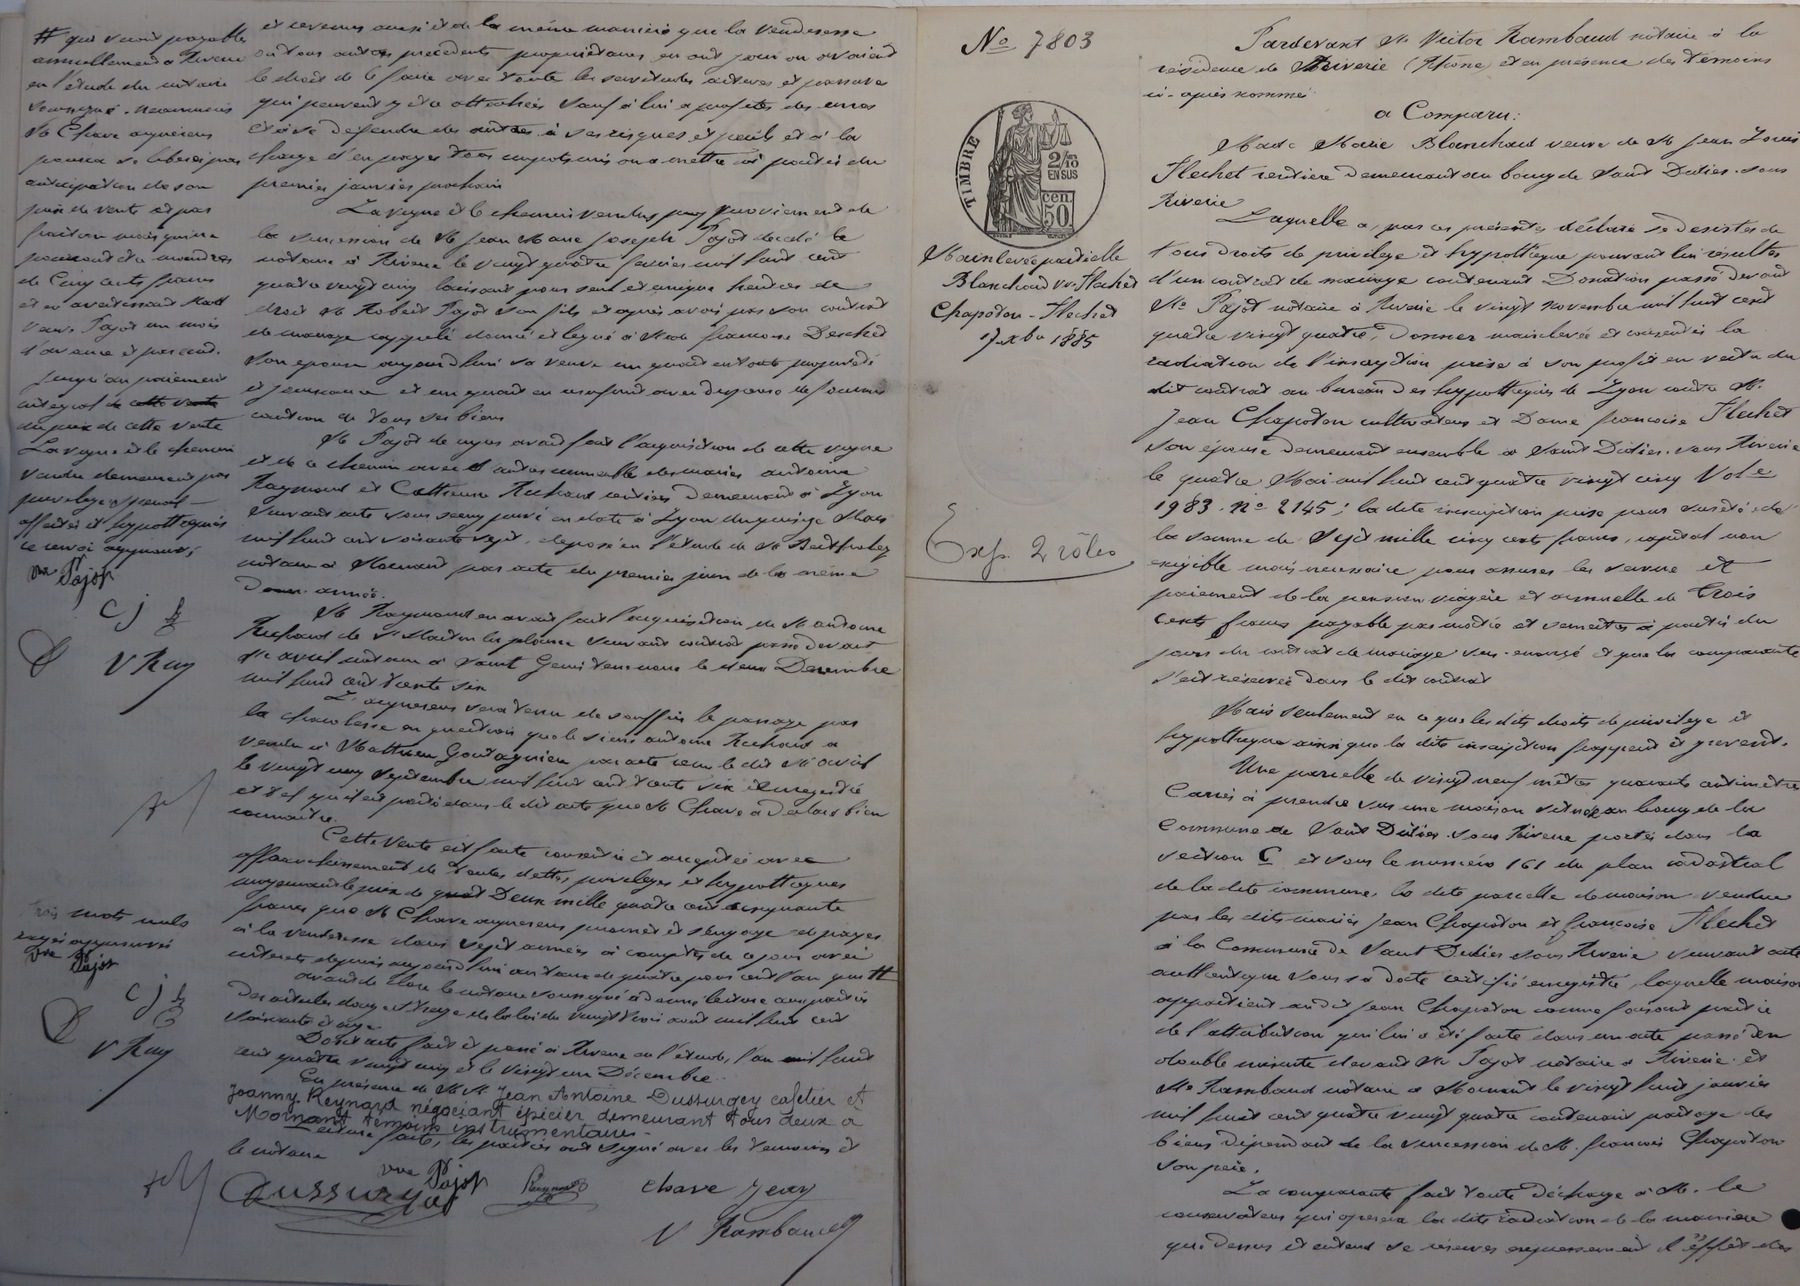 # qui seront payables
annuellement à Riverie
en l'étude du notaire
soussigné. Néanmoins
Mr Chave acquéreur
pourra se libérer par
anticipation de son
prix de vente et par
fraction mais qui ne
pourront être moindres
de Cinq cents francs
et en avertissant Made
veuve Pajot un mois
d'avance
Jusqu'au paiement
intégral de cette vente
du prix de cette vente
La vigne et le chemin
vendus demeurent par
privilège spécial
affectés et hypothéqués
ce renvoi approuvé,
vve Pajot
C J
V Ray
Trois mots nuls
rayés approuvés
vve Pajot
C J
V Ray
et revenus ainsi et de la même manière que la venderesse
ou tous autres précédents propriétaires en ont joui ou avaient
le droit de le faire avec toute les servitudes actives et passives
qui peuvent y être attachées sauf à lui à profiter des unes
et à se défendre des autres à ses risques et périls et à la
charge d'en payer tous impôts mis ou à mettre à partir du
premier janvier prochain
La vigne et le chemin vendus proviennent de
la succession de Mr Jean Marie Joseph Pajot décédé
notaire à Riverie le vingt quatre février mil huit cent
quatre vingt cinq laissant pour seul et unique héritier de
droit Mr Robert Pajot son fils et après avoir par son contrat
de mariage rappelé donné et légué à Made françoise Deschet
son épouse aujourd'hui sa veuve un quart en toute propriété
et jouissance et un quart en usufruit avec dispense de fournir
caution de tous ses biens
Mr Pajot de cujus avait fait l'acquisition de cette vigne
et de ce chemin avec d'autres immeubles des mariés antoine
Raymond et Catherine Richard rentiers demeurant à Lyon
suivant acte sous seing privé en date à Lyon du quinze Mars
mil huit cent soixante sept, déposé en l'étude de Me
notaire à Mornant par acte du premier juin de la même
année.
Mr Raymond en avait fait l'acquisition de Mr antoine
Richard de St Martin la plaine suivant contrat passé devant
Me avril notaire à Saint Genis terre noire le deux Décembre
mil huit cent trente six
L'acquéreur sera tenu de souffrir le passage par
la charolesse en question que le sieur antoine Richard a
vendu à Matthieu Goutagnieu par acte reçu le dit Me avril
le vingt cinq Septembre mil huit cent trente six enregistré
et tel qu'il est porté dans le dit acte que Mr Chave a déclaré bien
connaître.
Cette vente est faite consentie et acceptée avec
affranchissement de toutes dettes, privilèges et hypothèques
moyennant le prix de Deux mille quatre cent cinquante
francs que Mr Chave acquéreur promet et s'engage de payer
à la venderesse dans sept années à compter de ce jour avec
intérêts depuis aujourd'hui au taux de quatre pour cent l'an qui #
avant de clore le notaire soussigné a donné lecture aux parties
des articles douze et treize de la loi du vingt trois août mil huit cent
soixante et onze
Dont acte fait et passé à Riverie en l'étude, l'an mil huit
cent quatre vingt cinq et le vingt un Décembre.
En présence de M M Jean Antoine Dussurgey cafetier et
Joanny Reynard négociant épicier demeurant tous deux à
Mornant témoins instrumentaires.
Lecture faite, les parties ont signé avec les témoins et
le notaire
vve Pajot
Dussurgey
Reynard
Chave Jean
V Rambaud
No 7803
TIMBRE
2/10 EN SUS
cen. 50
Mainlevée partielle
Blanchard vve Flechet
Chapoton - Flechet
17 Xbre 1885
Exp. 2 rôles
Pardevant Me Victor Rambaud notaire à la
résidence de Riverie (Rhône) et en présence des témoins
ci-après nommés
a Comparu:
Made Marie Blanchard veuve de Mr Jean Louis
Flechet rentière demeurant au bourg de Saint Didier-sous
Riverie
Laquelle a, par ces présentes, déclaré se désister de
tous droits de privilège et hypothèque pouvant lui résulter
d'un contrat de mariage contenant Donation passé devant
Me Pajot notaire à Riverie le vingt novembre mil huit cent
quatre vingt quatre, donner mainlevée et consentir la
radiation de l'inscription prise à son profit en vertu du
dit contrat au bureau des hypothèques de Lyon contre Mr
Jean Chapoton cultivateur et Dame françoise Flechet
son épouse demeurant ensemble à Saint Didier-sous Riverie
le quatre Mai mil huit cent quatre vingt cinq Vole
1983. No 2145; la dite inscription prise pour sûreté de
la somme de Sept mille cinq cents francs, capital non
exigible mais nécessaire pour assurer le service et
paiement de la pension viagère et annuelle de trois
cents francs payable par moitié et semestre à partir du
jour du contrat de mariage sus-énoncé et que la comparante
s'est réservée dans le dit contrat
Mais seulement en ce que les dits droits de privilège et
hypothèque ainsi que la dite inscription frappent et grèvent.
Une parcelle de vingt neuf mètres quarante centimètres
Carrés à prendre sur une maison située au bourg de la
Commune de Saint Didier-sous Riverie portée dans la
section C et sous le numéro 161 du plan cadastral
de la dite commune, la dite parcelle de maison vendue
par les dits mariés Jean Chapoton et françoise Flechet
à la Commune de Saint Didier sous Riverie suivant acte
authentique sous sa date certifié enregistré, laquelle maison
appartient au dit Jean Chapoton comme faisant partie
de l'attribution qui lui a été faite dans un acte passé en
double minute devant Me Pajot notaire à Riverie et
Me Rambaud notaire à Mornant le vingt huit janvier
mil huit cent quatre vingt quatre contenant partage des
biens dépendant de la succession de Mr françois Chapoton
son père.
La comparante fait toute décharge à Mr le
conservateur qui opérera la dite radiation de la manière
que dessus et entend se réserver expressément l'effet des